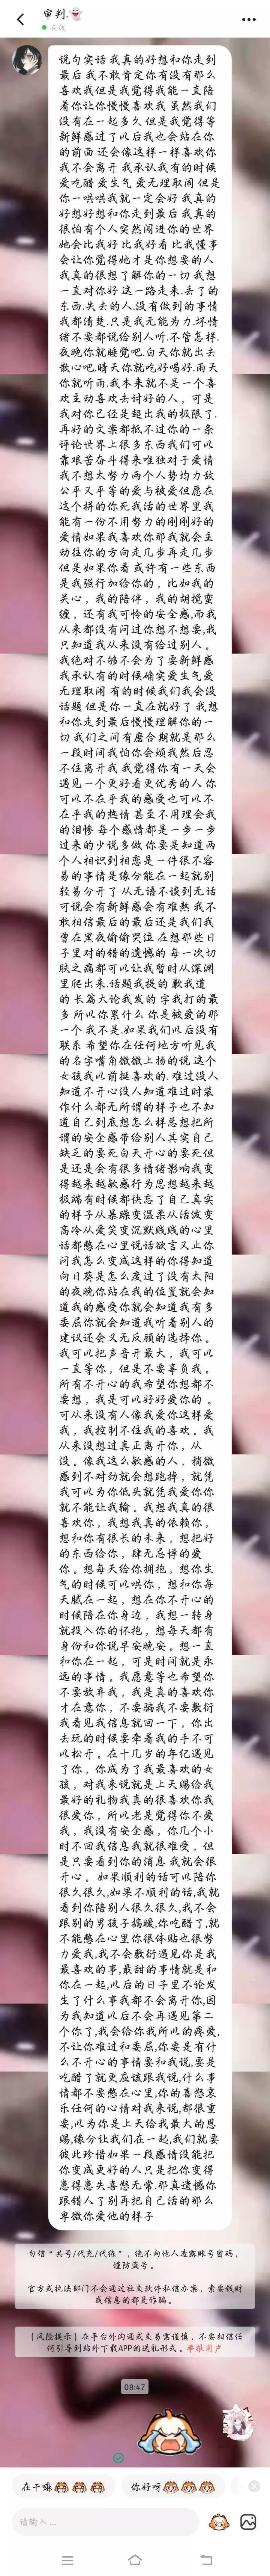 审判.
在线
说句实话 我真的好想和你走到
最后 我不敢肯定你有没有那么
喜欢我但是我觉得我能一直陪
着你让你慢慢喜欢我 虽然我们
没有在一起多久 但是我觉得时候
新鲜感过了以后我也会站在你
的前面 还会像这样一样喜欢你
我不会离开 我承认我有的时候
爱吃醋 爱生气 爱无理取闹 但是
你一哄哄我就一定会好 我真的
好想好想和你走到最后 我真的
很怕有个人突然闯进你的世界
她会比我好 比我好看 比我懂事
会让你觉得她才是你想要的人
我真的很想了解你的一切 我想
一直对你好 这一路走来.丢了的
东西.失去的人.没有做到的事情
我都清楚.只是我无能为力.坏情
绪不要都说给别人听.不管怎样.
夜晚你就睡觉吧.白天你就出去
散心吧.晴天你就吃好喝好.雨天
你就听雨.我本来就不是一个喜
欢主动喜欢去讨好的人，可是
我对你已经是超出我的极限了.
再好的文案都抵不过你的一条
评论世界上很多东西我们可以
靠艰苦奋斗得来唯独对于爱情
我不想太努力两个人势均力敌
公平又平等的爱与被爱但愿在
这个拼的你死我话的世界里我
能有一份不用努力的刚刚好的
爱情如果我喜欢你那我就会主
动往你的方向走几步再走几步
但是如果你看 或许有一些东西
是我强行加给你的，比如我的
关心，我的陪伴，我的胡搅蛮
缠，还有我可怜的安全感,而我
从来都没有问过你想不想要,我
只知道我从来没有给过别人。
我绝对不够不会为了要新鲜感
我承认有的时候确实爱生气爱
无理取闹 有的时候我们我会没
话题 但是你一直在就好了 我想
和你走到最后慢慢理解你的一
切 我们之间有磨合期就是那么
一段时间我怕你会烦我然后忍
不住离开我 我觉得你有一天会
遇见一个更好看更优秀的人 你
可以不在乎我的感受也可以不
在乎我的热情 甚至不用理会我
的泪惨 每个感情都是一步一步
过来的少说多做 你要是知道两
个人相识到相恋是一件很不容
易的事情是缘分能在一起就别
轻易分开了 从无语不谈到无话
可说会有新鲜感会有难熬 我不
敢相信最后的最后还是我们我
曾在黑夜偷偷哭泣 在想那些日
子里对的错的遗憾的 每一次切
肤之痛都可以让我暂时从深渊
里爬出来.话题我提的 歉我道
的 长篇大论我发的 字我打的最
多 所以你累什么 你是被爱的那
一个 我不是.如果我们以后没有
联系 希望你在任何地方听见我
的名字嘴角微微上扬的说 这个
女孩我以前挺喜欢的.难过没人
知道不开心没人知道难过时装
作什么都无所谓的样子也不知
道自己到底想怎么样总想把所
谓的安全感带给别人其实自己
缺乏的要死白天开心的要死但
是还是会有很多情绪影响我变
得越来越敏感行为思想越来越
极端有时候都快忘了自己真实
的样子从暴躁变温柔从活泼变
高冷从爱笑变沉默贱贱的心里
话都憋在心里说话欲言又止你
问我怎么变成这样的你得知道
向日葵是怎么度过了没有太阳
的夜晚你站在我的位置就会知
道我的感受你就会知道我有多
委屈你就会知道我听着别人的
建议还会义无反顾的选择你。
我可以把声音开最大，我可以
一直等你，但是不要辜负我。
所有不开心的我希望你想都不
要想，我是可以好好爱你的。
可从来没有人像我爱你这样爱
我，我控制不住我的喜欢。我
从来没想过真正离开你，从
没。像我这么敏感的人，稍微
感到不对劲就会想跑掉，就凭
我可以为你低头就凭我爱你你
就不能让我输。我想我真的很
喜欢你，我想我真的依赖你，
想和你有很长的未来，想把好
的东西给你，肆无忌惮的爱
你。想每天给你拥抱，想你生
气的时候可以哄你，想和你每
天腻在一起，想在你不开心的
时候陪在你身边，我想一转身
就投入你的怀抱，想每天都有
身份和你说早安晚安。想一直
和你在一起，可是时间就是永
远的事情。我愿意等也希望你
不要放弃我，我是真的喜欢你
才在意你，不要骗我不要敷衍
我看见我信息就回一下，你出
去玩的时候要牵着我的手不可
以松开，在十几岁的年纪遇见
了你，你成为了我最喜欢的女
孩，对我来说就是上天赐给我
最好的礼物我真的很喜欢你我
很爱你，所以老是觉得你不爱
我，我没有安全感，你几个小
时不回我信息我就很难受，但
是只要看到你的消息 我就会很
开心。 如果顺利的话可以陪你
很久很久,如果不顺利的话,我就
看到你陪别人很久很久,我不会
跟别的男孩子搞暧,你吃醋了,就
不能憋在心里你很体贴也很努
力爱我,我不会敷衍遇见你是我
最喜欢的事,最甜的事情就是和
你在一起,以后的日子里不论发
生了什么事我都不会离开你,因
为我知道以后不会再遇见第二
个你了,我会给你我所以的疼爱,
不让你难过和委屈,你要是有什
么不开心的事情要和我说,要是
吃醋了就更应该跟我说,什么事
情都不要憋在心里,你的喜怒哀
乐任何的心情对我来说,都很重
要,以为你是上天给我最大的恩
赐,缘分让我们在一起,我们就要
彼此珍惜如果一段感情没能把
你变成更好的人只是把你变得
患得患失喜怒无常.那真遗憾你
跟错人了别再把自己活的那么
卑微你爱他的样子
勿信“共号/代充/代练”，绝不向他人透露账号密码，
谨防盗号。
官方或执法部门不会通过社交软件私信办案，索要钱财
或信息的都是诈骗。
【风险提示】在平台外沟通或交易需谨慎，不要相信任
何引导到站外下载APP的送礼形式。举报用户
08:47
在干嘛
你好呀
请输入...